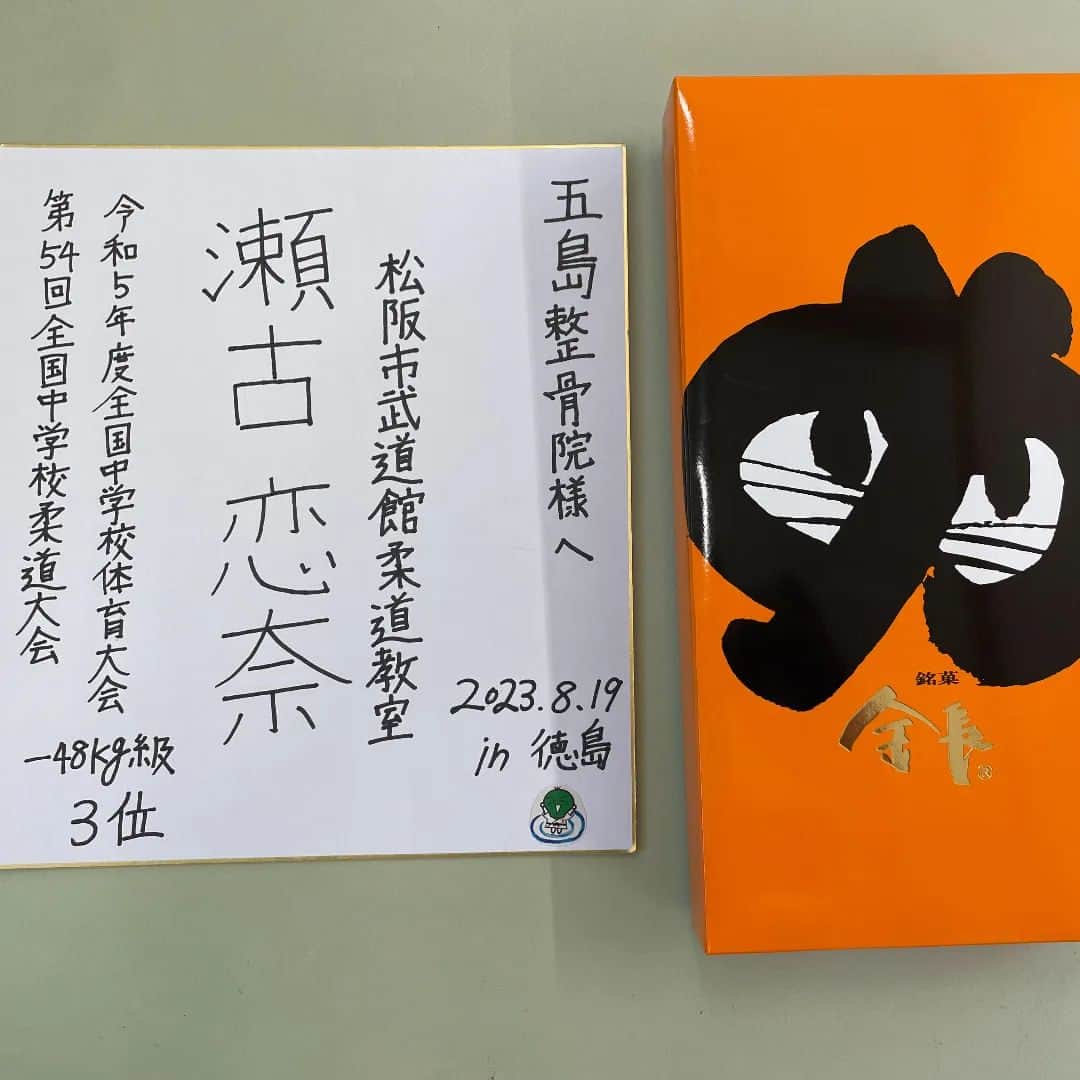 五島整骨院様へ
松阪市武道館柔道教室
瀬古恋奈
令和5年度全国中学校体育大会
第54回全国中学校柔道大会
-48kg級
3位
2023.8.19
in 徳島
銘菓
金長®